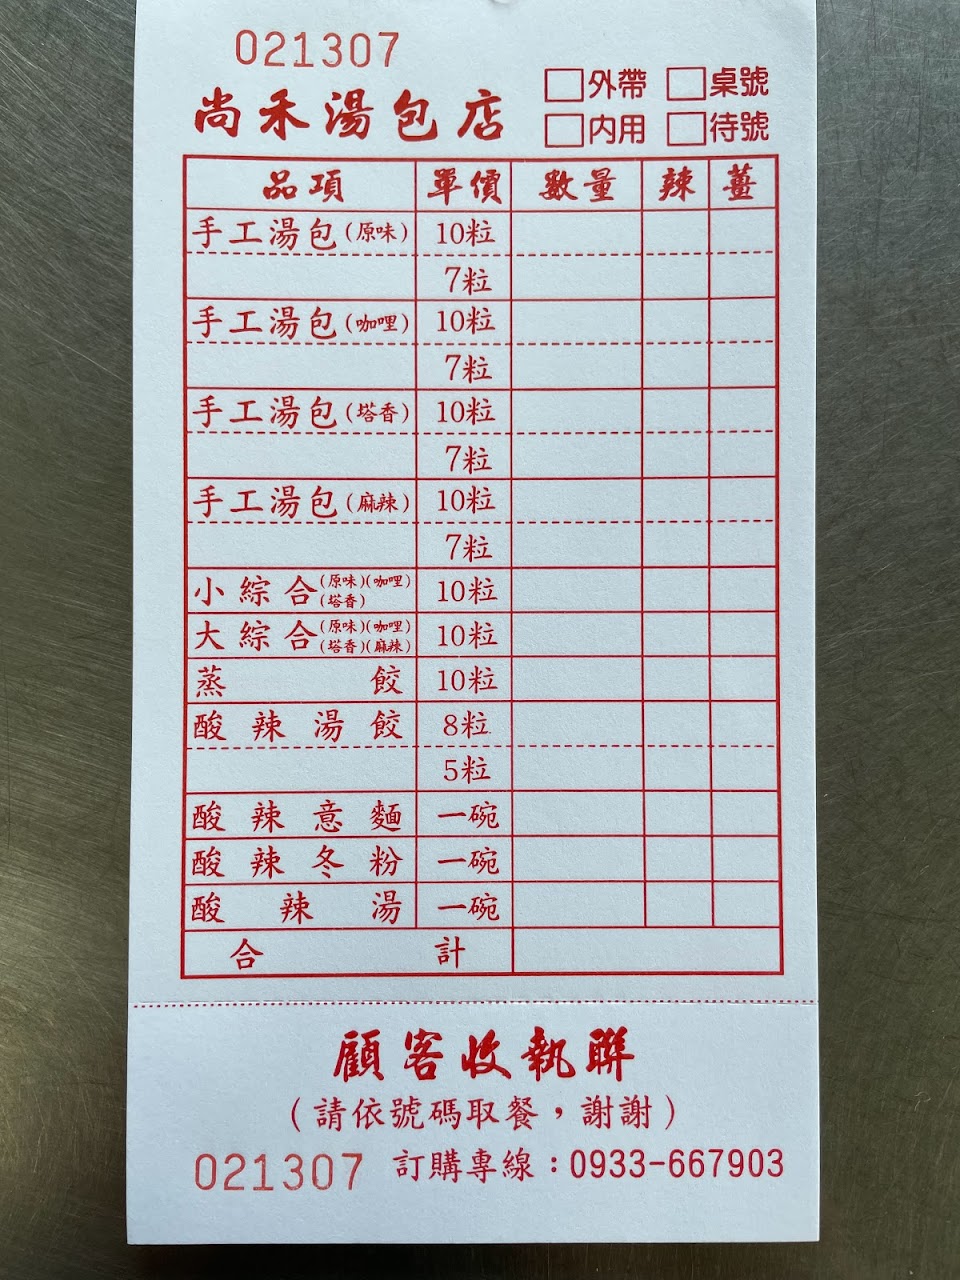 021307
尚禾湯包店
□外帶 □桌號
□內用 □待號
品項 單價 數量 辣 薑
手工湯包(原味) 10粒
7粒
手工湯包(咖哩) 10粒
7粒
手工湯包(塔香) 10粒
7粒
手工湯包(麻辣) 10粒
7粒
小綜合(原味)(咖哩)(塔香) 10粒
大綜合(原味)(咖哩)(塔香)(麻辣) 10粒
蒸餃 10粒
酸辣湯餃 8粒
5粒
酸辣意麵 一碗
酸辣冬粉 一碗
酸辣湯 一碗
合計
顧客收執聯
(請依號碼取餐,謝謝)
021307 訂購專線:0933-667903